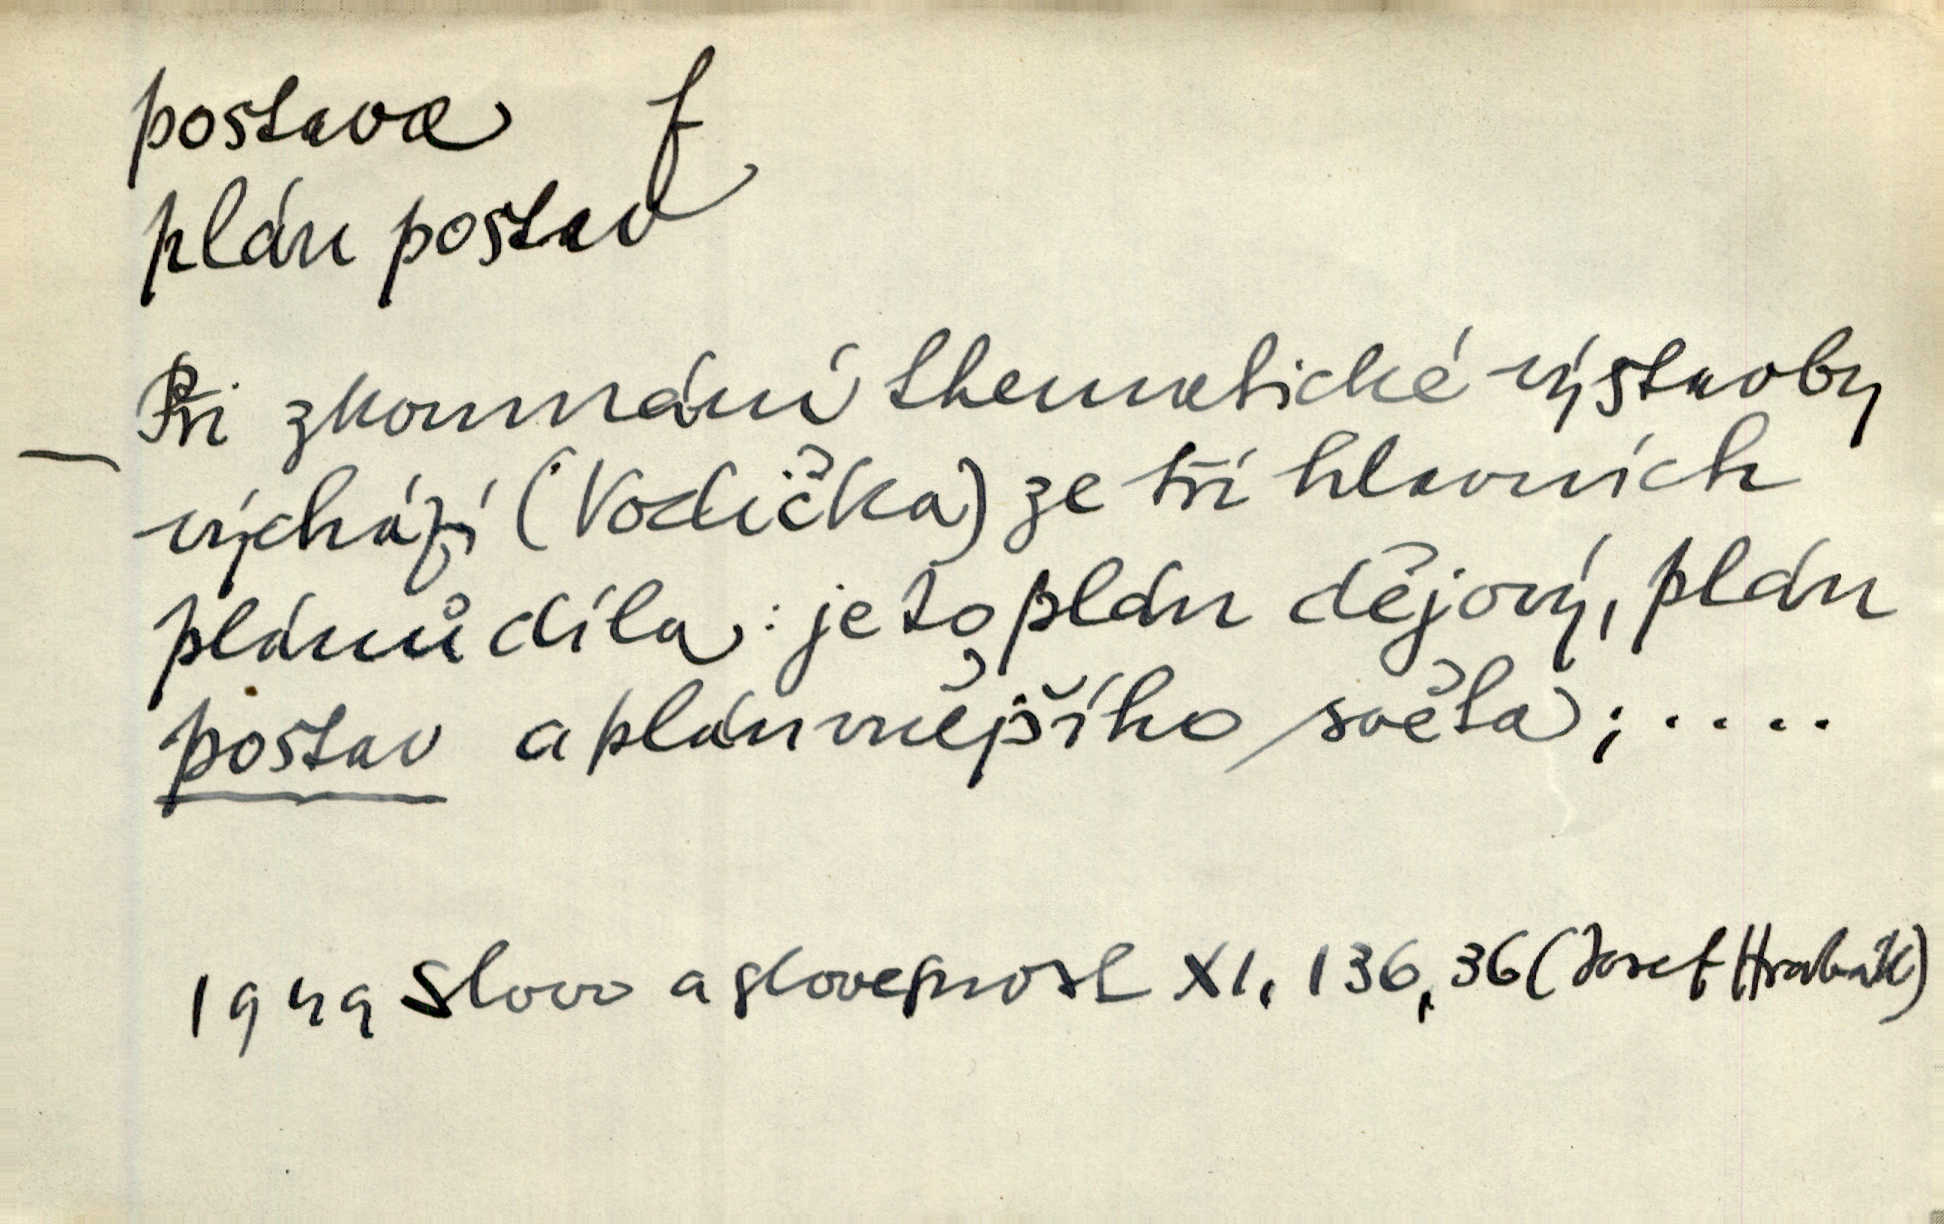 postava f
plán postav
Při zkoumání thematické výstavby
výchází (Vodička) ze tří hlavních
plánů díla: je to plán dějový, plán
postav a plán vnějšího světa; . . . .
1949 Slovo a slovesnost XI, 136, 36 (Josef Hrabák)